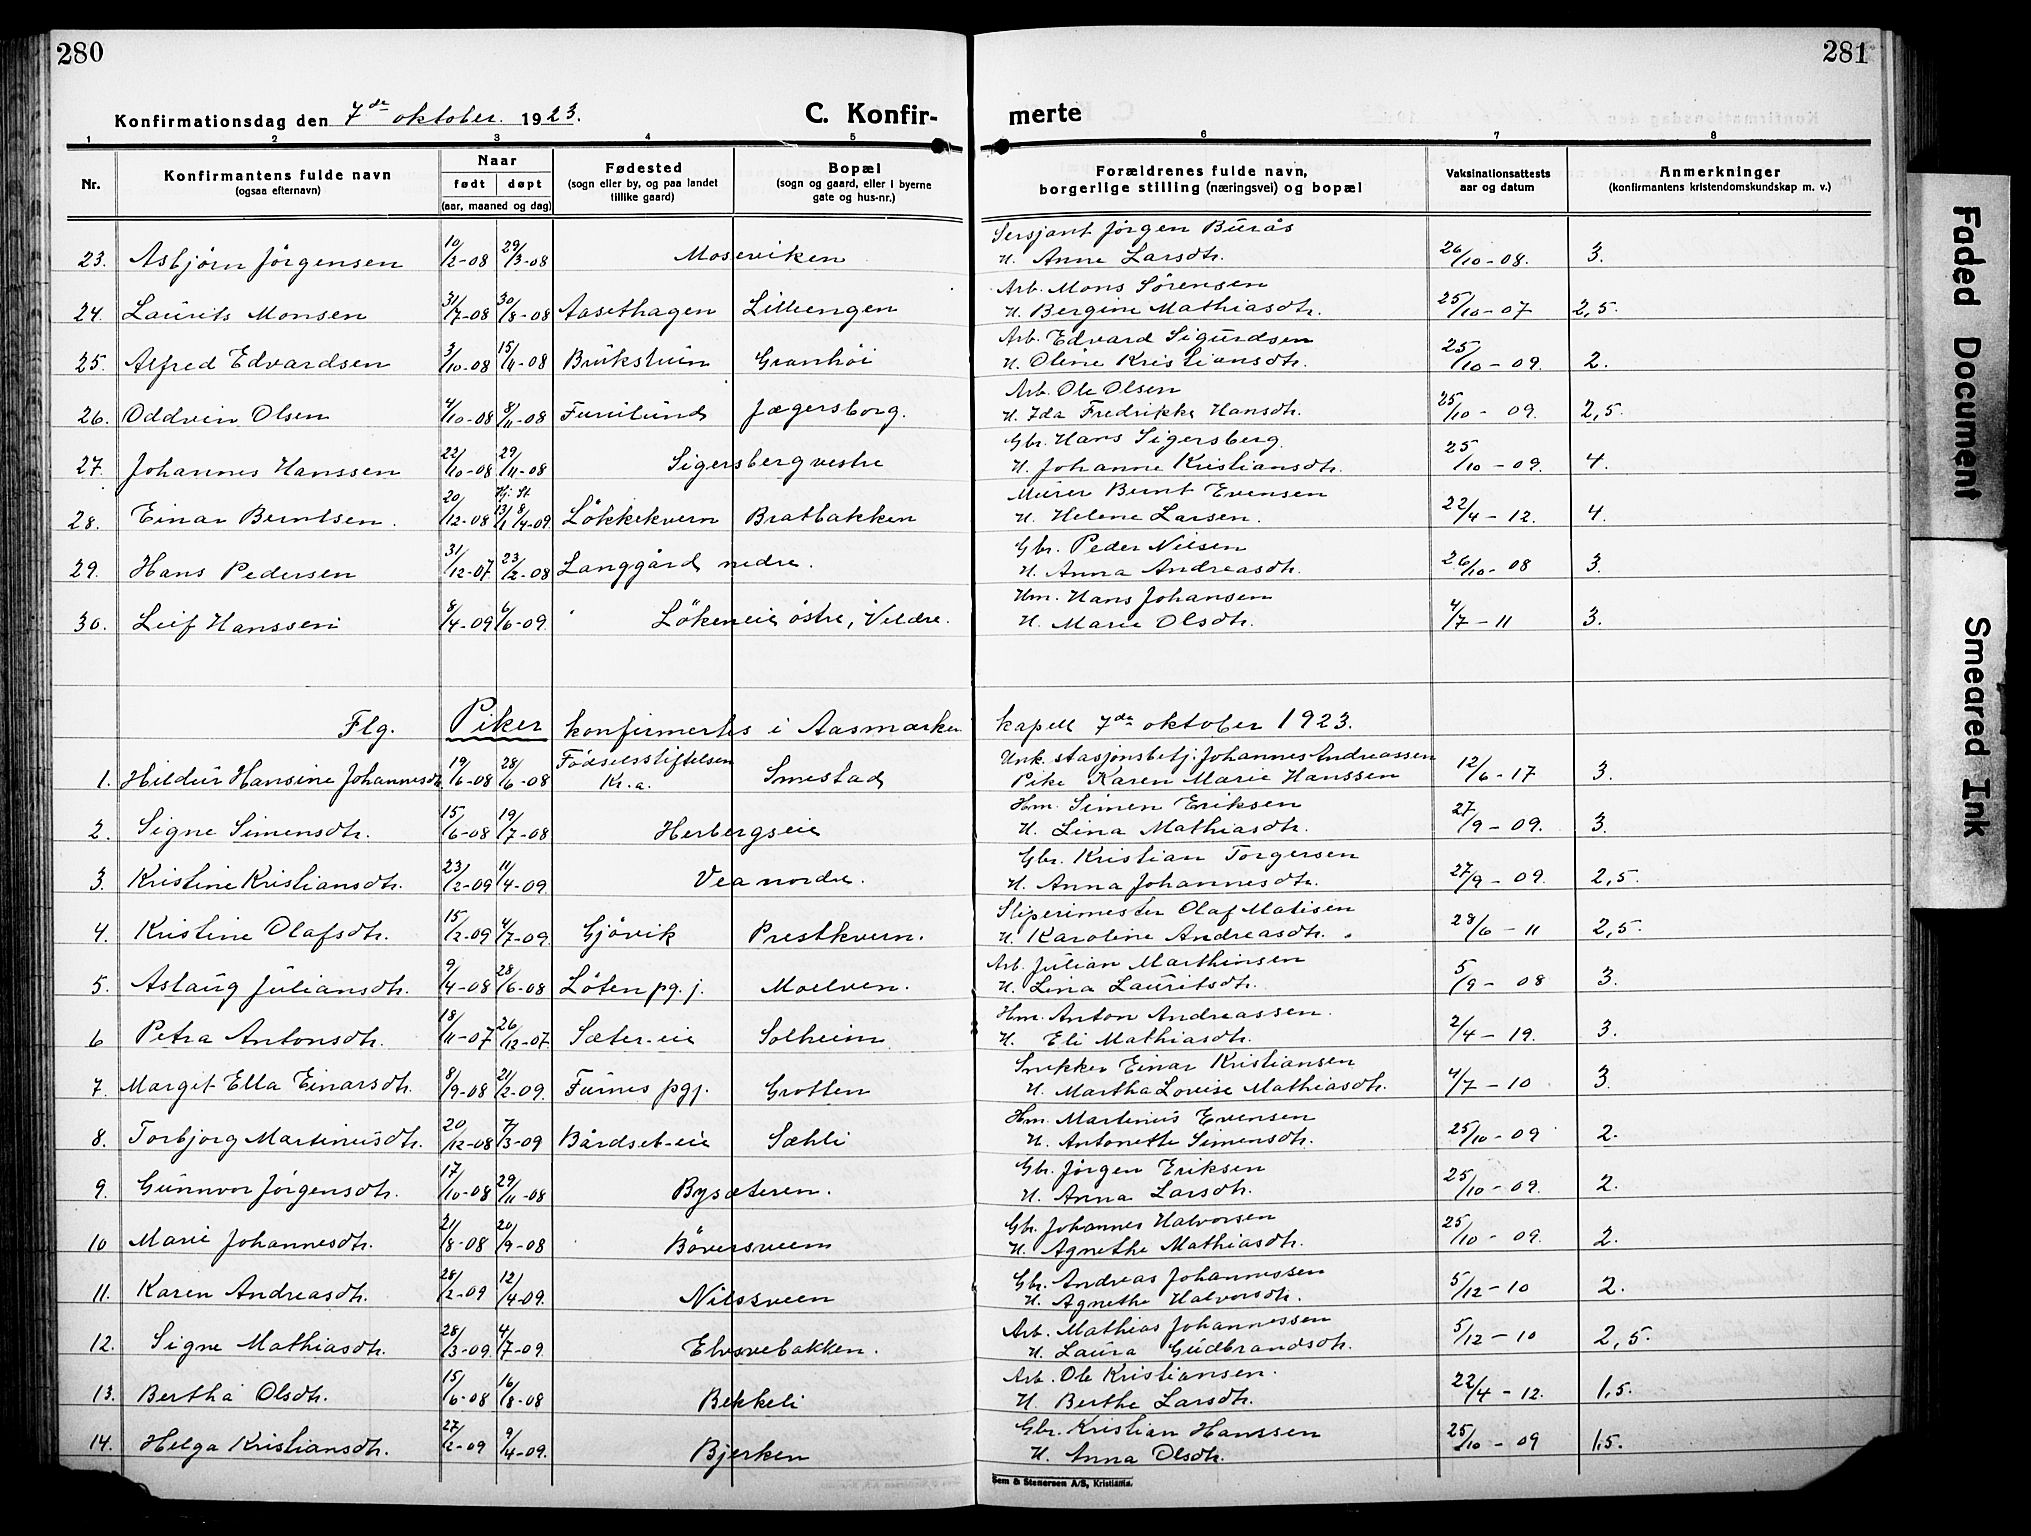 280
281
Konfirmationsdag den 7de oktober 1923.
C. Konfir-
merte
1 2 3 4 5 6 7 8
Nr.
Konfirmantens fulde navn
(ogsaa efternavn)
Naar
født døpt
(aar, maaned og dag)
Fødested
(sogn eller by, og paa landet
tillike gaard)
Bopæl
(sogn og gaard, eller i byerne
gate og hus-nr.)
Forældrenes fulde navn,
borgerlige stilling (næringsvei) og bopæl
Vaksinationsattests
aar og datum
Anmerkninger
(konfirmantens kristendomskundskap m. v.)
Sersjant Jörgen Burås
23. Asbjørn Jørgensen 10/2-08 29/3-08 Moseviken H. Anne Larsdtr. 26/10-08. 3.
Arb. Mons Sörensen
24. Laurits Monsen 31/7-08 30/8-08 Aasethagen Lilleengen H. Bergine Mathiasdtr. 25/10-07 2,5.
Arb. Edvard Sigurdsen
25. Alfred Edvardsen 3/10-08 15/11-08 Brukstuen Granhöi H. Oline Kristiansdtr. 25/10-09. 2.
Arb. Ole Olsen
26. Oddvin Olsen 4/10-08 8/11-08 Furulund Jægersborg. H. Ida Fredrikke Hansdtr. 25/10-09. 2,5.
Gbr. Hans Sigersberg.
27. Johannes Hanssen 22/10-08 29/11-08 Sigersberg vestre H. Johanne Kristiansdtr. 25/10-09. 4.
Hj. St.
Murer Bernt Evensen
28. Einar Berntsen. 20/12-08 13/1 8/4-09. Lökkekvern Bratbakken H. Helene Larsen. 22/4-12. 4.
Gbr. Peder Nilsen
29. Hans Pedersen 31/12-07 23/2-08 Langgård nedre. H. Anna Andreasdtr. 26/10-08 3.
Hm. Hans Johansen
30. Leif Hanssen 8/4-09 6/6-09. Lökeneie östre, Veldre. H. Marie Olsdtr. 4/7-11 3.
Flg. Piker konfirmertes i Aasmarken kapell 7de oktober 1923.
Fødselsstiftelsen Unk. stasjonsbetj. Johannes Andreassen
1. Hildur Hansine Johannesdtr. 19/6-08 28/6-08 Kr.a. Smestad Pike Karen Marie Hanssen 12/6-17 3.
Hm. Simen Eriksen
2. Signe Simensdtr. 15/6-08 19/7-08 Herbergseie H. Lina Mathiasdtr. 27/9-09. 3.
Gbr. Kristian Torgersen
3. Kristine Kristiansdtr. 23/2-09 11/4-09. Vea nordre. H. Anna Johannesdtr. 27/9-09. 2,5.
Sliperimester Olaf Matisen
4. Kristine Olafsdtr. 15/2-09 4/7-09. Gjövik Prestkvern. H. Karoline Andreasdtr. 28/6-11 2,5.
Arb. Julian Marthinsen
5. Aslaug Juliansdtr. 9/4-08 28/6-08 Löten pg.j. Moelven. H. Lina Lauritsdtr. 5/9-08 3.
Hm. Anton Andreassen.
6 Petra Antonsdtr. 18/11-07 26/12-07. Sæter-eie Solheim H. Eli Mathiasdtr. 2/4-19. 3.
Snekker Einar Kristiansen
7. Margit Ella Einarsdtr. 8/9-08 21/2-09. Furnes pgj. Grotten H. Martha Lovise Mathiasdtr. 4/7-10 3.
Hm. Martinus Evensen
8. Torbjorg Martinusdtr. 20/12-08 7/3-09 Bårdset-eie Sæhli H. Antonette Simensdtr. 25/10-09 2.
Gbr. Jörgen Eriksen
9. Gunnvor Jörgensdtr. 17/10-08 29/11-08 Bysæteren. H. Anna Larsdtr. 25/10-09. 2.
Gbr. Johannes Halvorsen
10 Marie Johannesdtr. 21/8-08 20/9-08 Böversveen H. Agnethe Mathiasdtr. 25/10-09. 2.
Gbr. Andreas Johannessen
11. Karen Andreasdtr. 28/2-09 12/4-09. Nilssveen H. Agnethe Halvorsdtr. 5/12-10 2.
Arb. Mathias Johannessen
12. Signe Mathiasdtr. 28/3-09. 4/7-09. Elvsvebakken. H. Laura Gudbrandsdtr. 5/12-10 2,5.
Arb. Ole Kristiansen.
13. Bertha Olsdtr. 15/6-08 16/8-08 Bekkeli H. Berthe Larsdtr. 22/4-12. 1,5.
Gbr. Kristian Hanssen
14. Helga Kristiansdtr. 27/2-09 9/4-09. Bjerken H. Anna Olsdtr. 25/10-09 1,5.
Sem & Stenersen A/S, Kristiania.
Faded Document
Smeared Ink